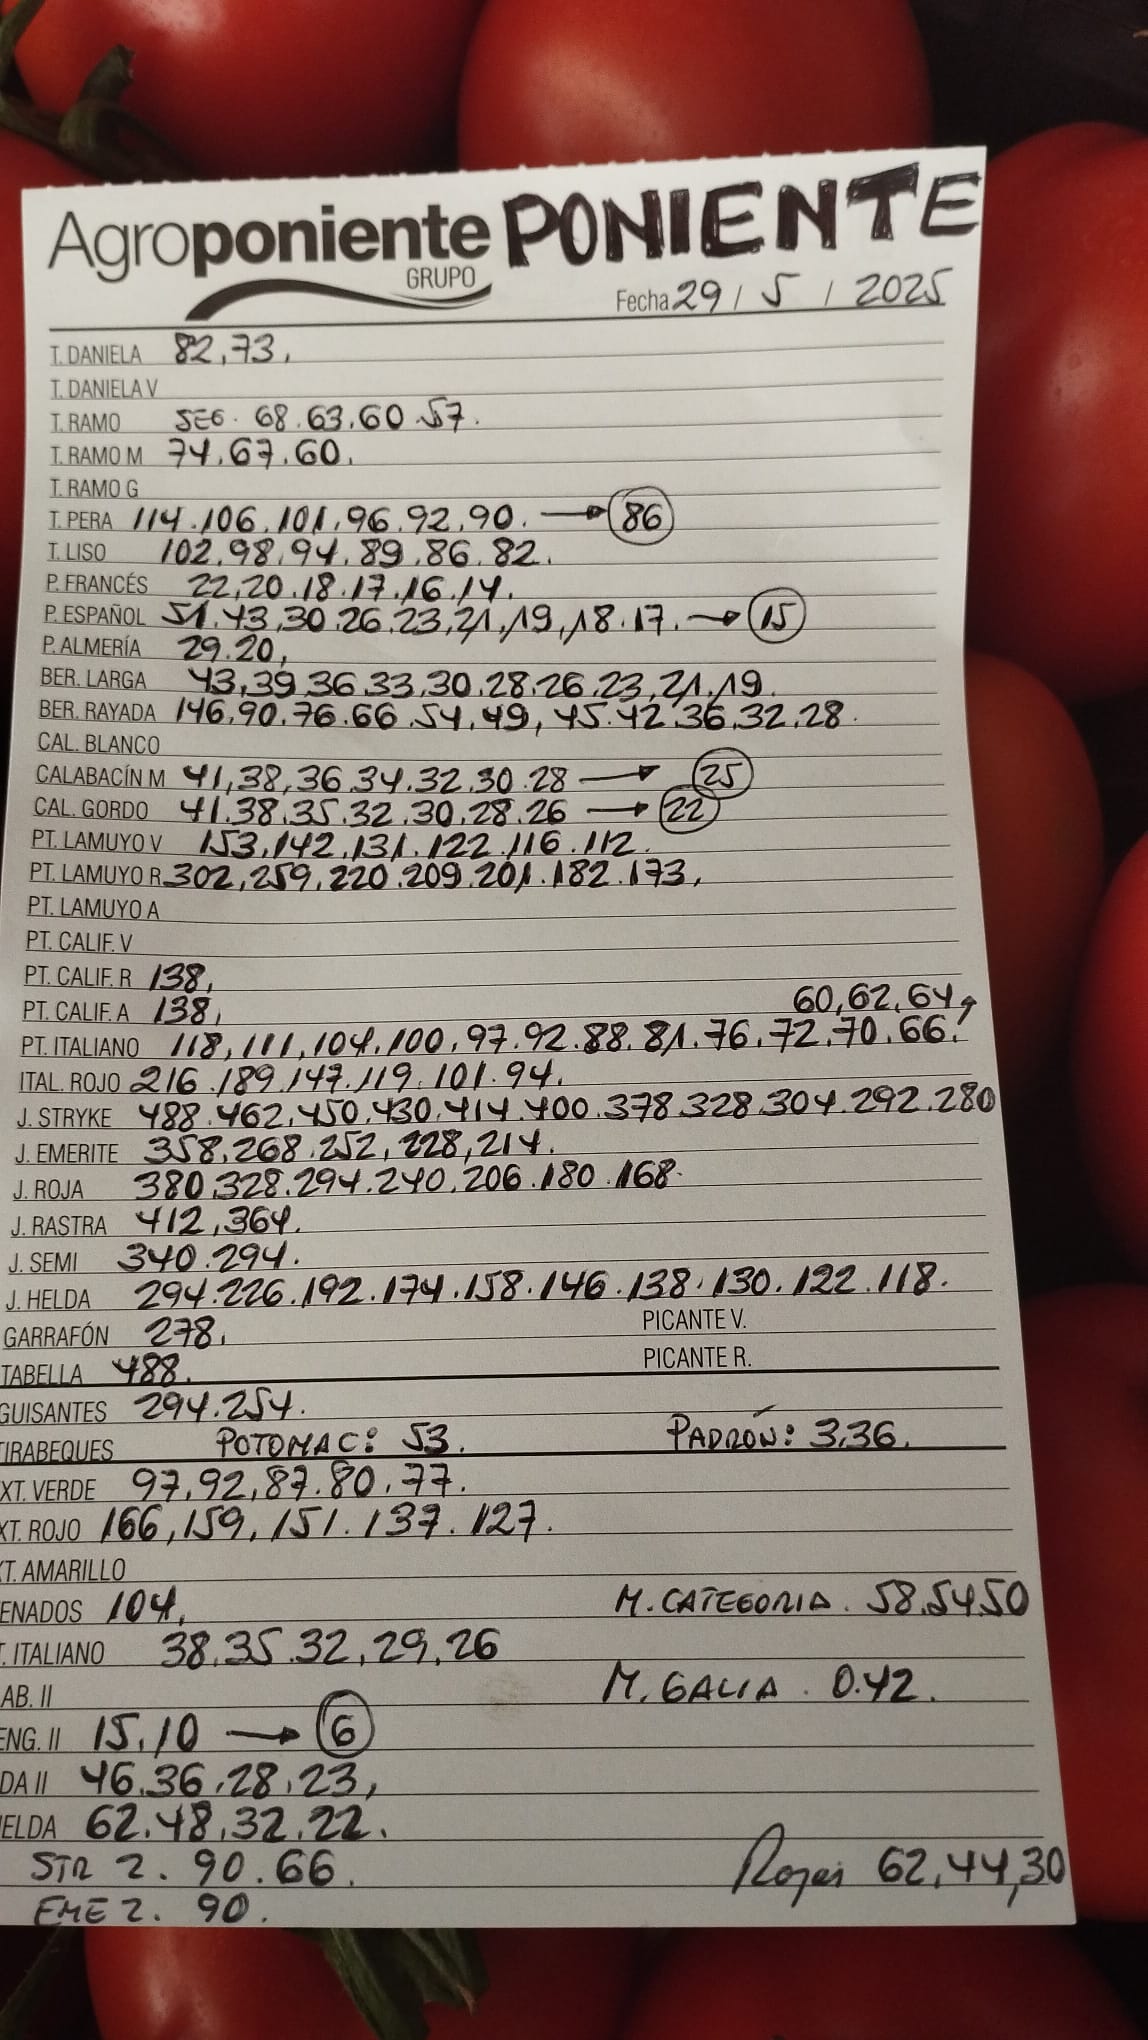 Agroponiente PONIENTE
GRUPO
Fecha 29 / 5 / 2025
T. DANIELA 82,73,
T. DANIELA V
T. RAMO SEG. 68.63,60.57.
T. RAMO M 74.67.60.
T. RAMO G
T. PERA 114.106.101,96.92,90. → 86
T. LISO 102,98,94.89.86.82.
P. FRANCÉS 22,20.18.17.16.14.
P. ESPAÑOL 51.43,30.26.23,21,19,18.17. → 15
P. ALMERÍA 29.20,
BER. LARGA 43,39,36.33,30.28.26.23,21.19.
BER. RAYADA 146,90.76.66.54.49,45.42.36.32.28.
CAL. BLANCO
CALABACÍN M 41,38,36.34.32.30.28 → 25
CAL. GORDO 41.38.35.32.30.28.26 → 22
PT. LAMUYO V 153,142,131.122.116.112.
PT. LAMUYO R 302,259,220.209.201.182.173,
PT. LAMUYO A
PT. CALIF. V
PT. CALIF. R 138,
PT. CALIF. A 138,
60,62,64,
PT. ITALIANO 118,111,104.100.97.92.88.81.76.72.70.66.
ITAL. ROJO 216.189,147.119.101.94.
J. STRYKE 488.462,450.430.414.400.378.328.304.292.280
J. EMERITE 358,268.252,228,214.
J. ROJA 380,328.294.240.206.180.168.
J. RASTRA 412,364.
J. SEMI 340.294.
J. HELDA 294.226.192.174.158.146.138.130.122.118.
GARRAFÓN 278, PICANTE V.
TABELLA 488. PICANTE R.
GUISANTES 294.254.
TIRABEQUES POTOMAC: 53. PADRÓN: 3,36.
XT. VERDE 97,92,87.80.77.
XT. ROJO 166,159,151.137.127.
T. AMARILLO
ENADOS 104, M. CATEGORIA. 58.54.50
. ITALIANO 38.35.32,29,26
AB. II M. GALIA. 0.42.
ENG. II 15.10 → 6
DA II 46.36.28.23,
ELDA 62.48,32.22.
STR 2. 90.66. 62,44,30
EME 2. 90.